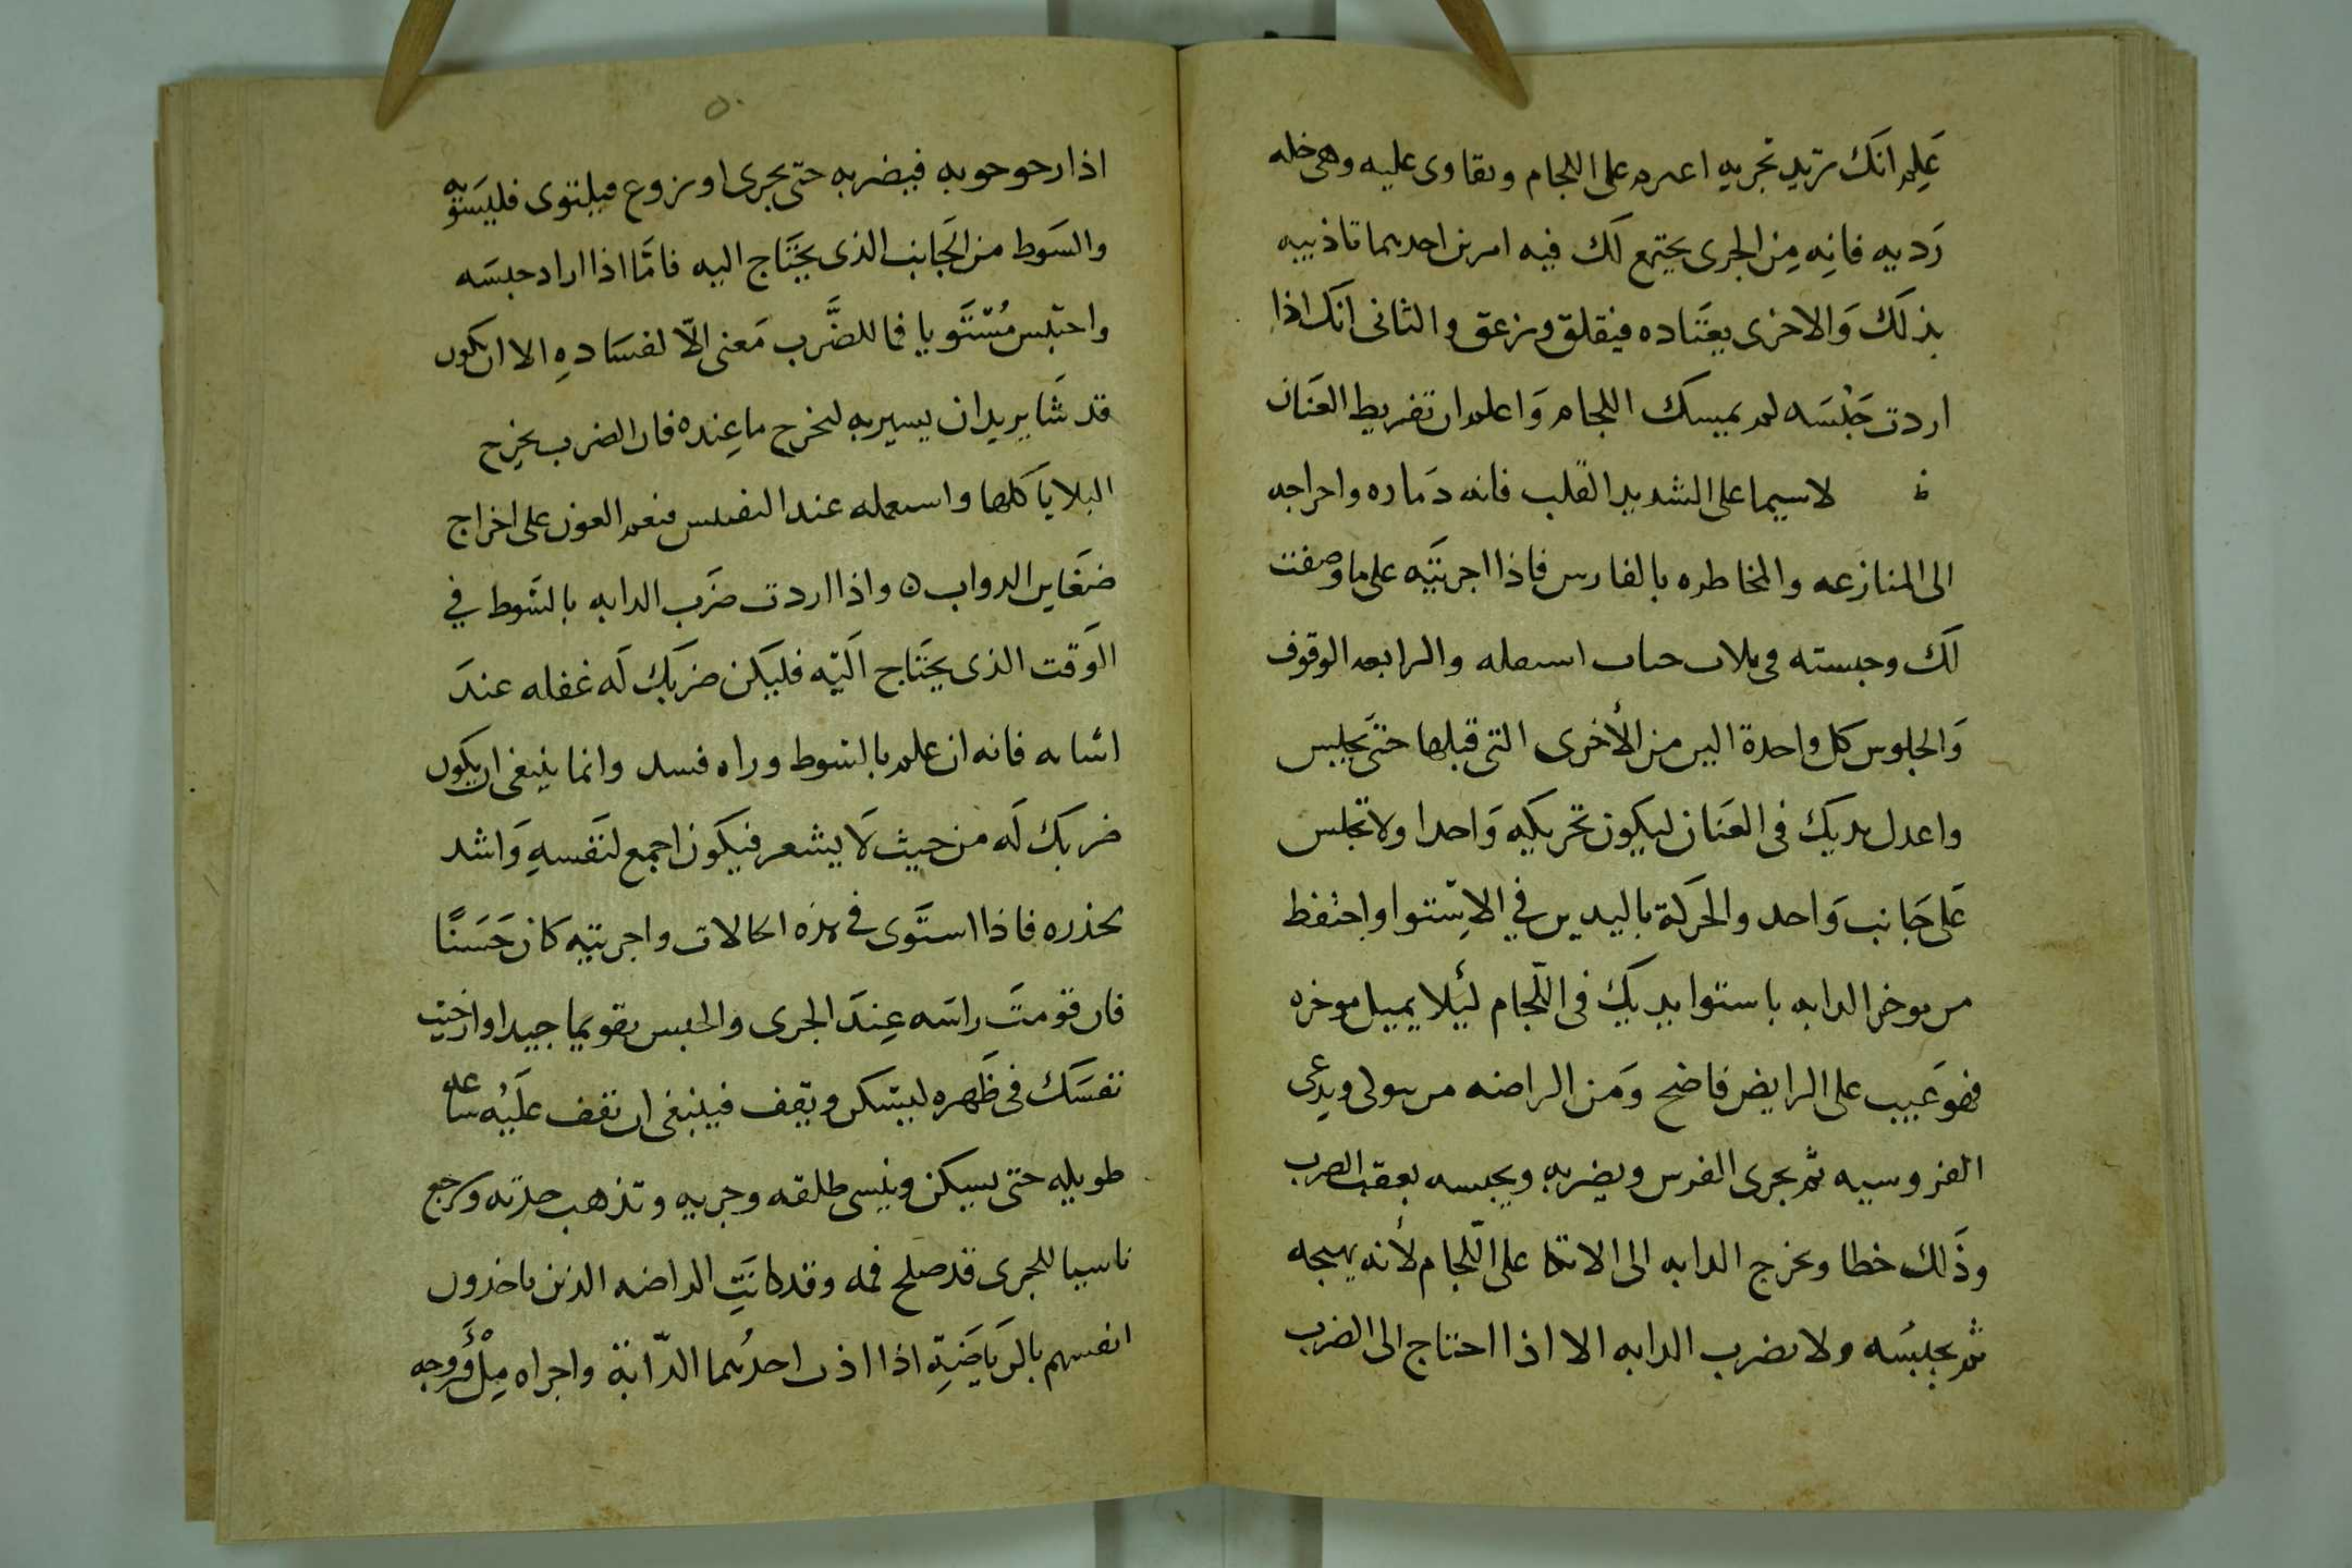 عَلِمَ انَكَ تريد تجريه اعترم على اللجام وتقاوى عليه وهى خله
رَديه فانِه مِنَ الجرى يجتمع لَك فيه امرين احديهما تاذيبه
بذلَكَ وَالاخرى يعتَاده فيقلق ويزعق والثانى انَك اذا
اردت حَبْسَه لم يمسك اللجام وَاعلم ان تفريط العنَان
لاسيما على الشديد القلب فانه دَماره واحراجه
الى المنازعه والمخاطره بالفارس فاذا اجريتَه على ما وصفت
لَك وحبسته فى ثلاث حبات اسهله والرابعه الوقوف
وَالجلوس كل واحدة الين من الأخرى التى قبلها حتَى يجلبس
واعدل يديك فى العنَان ليكون تحريكه وَاحدا ولا تجلس
عَلى جَانب وَاحد والحرَكة باليدين في الاِستوا واحتفظ
من موخر الدابه باستوا يديك فى اللّجام ليَلا يميل موخره
فهوَ عَيب على الرايض فاضح وَمن الراضه من يتولى ويدعى
الفروسيه ثم يجرى الفرس ويضربه ويحبسه بعقب الضرب
وذَلك خطا ويخرج الدابه الى الاتكا على اللّجام لأنه يهيجه
ثم يحبسُه ولا يضرب الدابه الا اذا احتاج الى الضرب
٥٠
اذا رحوحوبه فيضربه حتّى يجرى او يزوع فيلتوى فليسَوّيه
والسَوط من الجَانب الذى يحتَاج اليه فامَّا اذا اراد حبسَه
واحتبس مُسْتَويا فما للضَّرب مَعنى الّا لفسَادهِ الا ان يكون
قد شَا يريد ان يسيربه ليخرج ما عِنده فان الضرب يخرج
البلايَا كلها واستعمله عند التفتيس فنعم العون على اخراج
ضغَاين الدواب ٥ واذا اردت ضرَب الدابه بالسَوط في
الوَقت الذى يحتَاج اليَه فليكن ضربَك لَه غفله عندَ
اتيانه فانه ان علم بالسَوط وراه فسد وانما ينبغى ان يكون
ضربَك لَه من حيث لَا يشعر فيكَون اجمع لنَفسهِ وَاشد
لحذره فاذا استَوى في هذه الحالات واجريته كان حَسَنًا
فان قومتَ راسَه عِندَ الجرى والحبس تقويما جيدا وارخيت
نفسَك فى ظَهره ليسكن ويقف فينبغى ان تقف علَيه ساعه
طويله حتى يسكن وينسى طلقه وجريه وتذهب حدته ويرجع
ناسيا للجرى قد صلح فمه وقد كانَت الراضه الذين ياخذون
انفسهم بالريَاضَةِ اذا اذن احدُهما الدّابة واجراه مِلْؤ فروجه